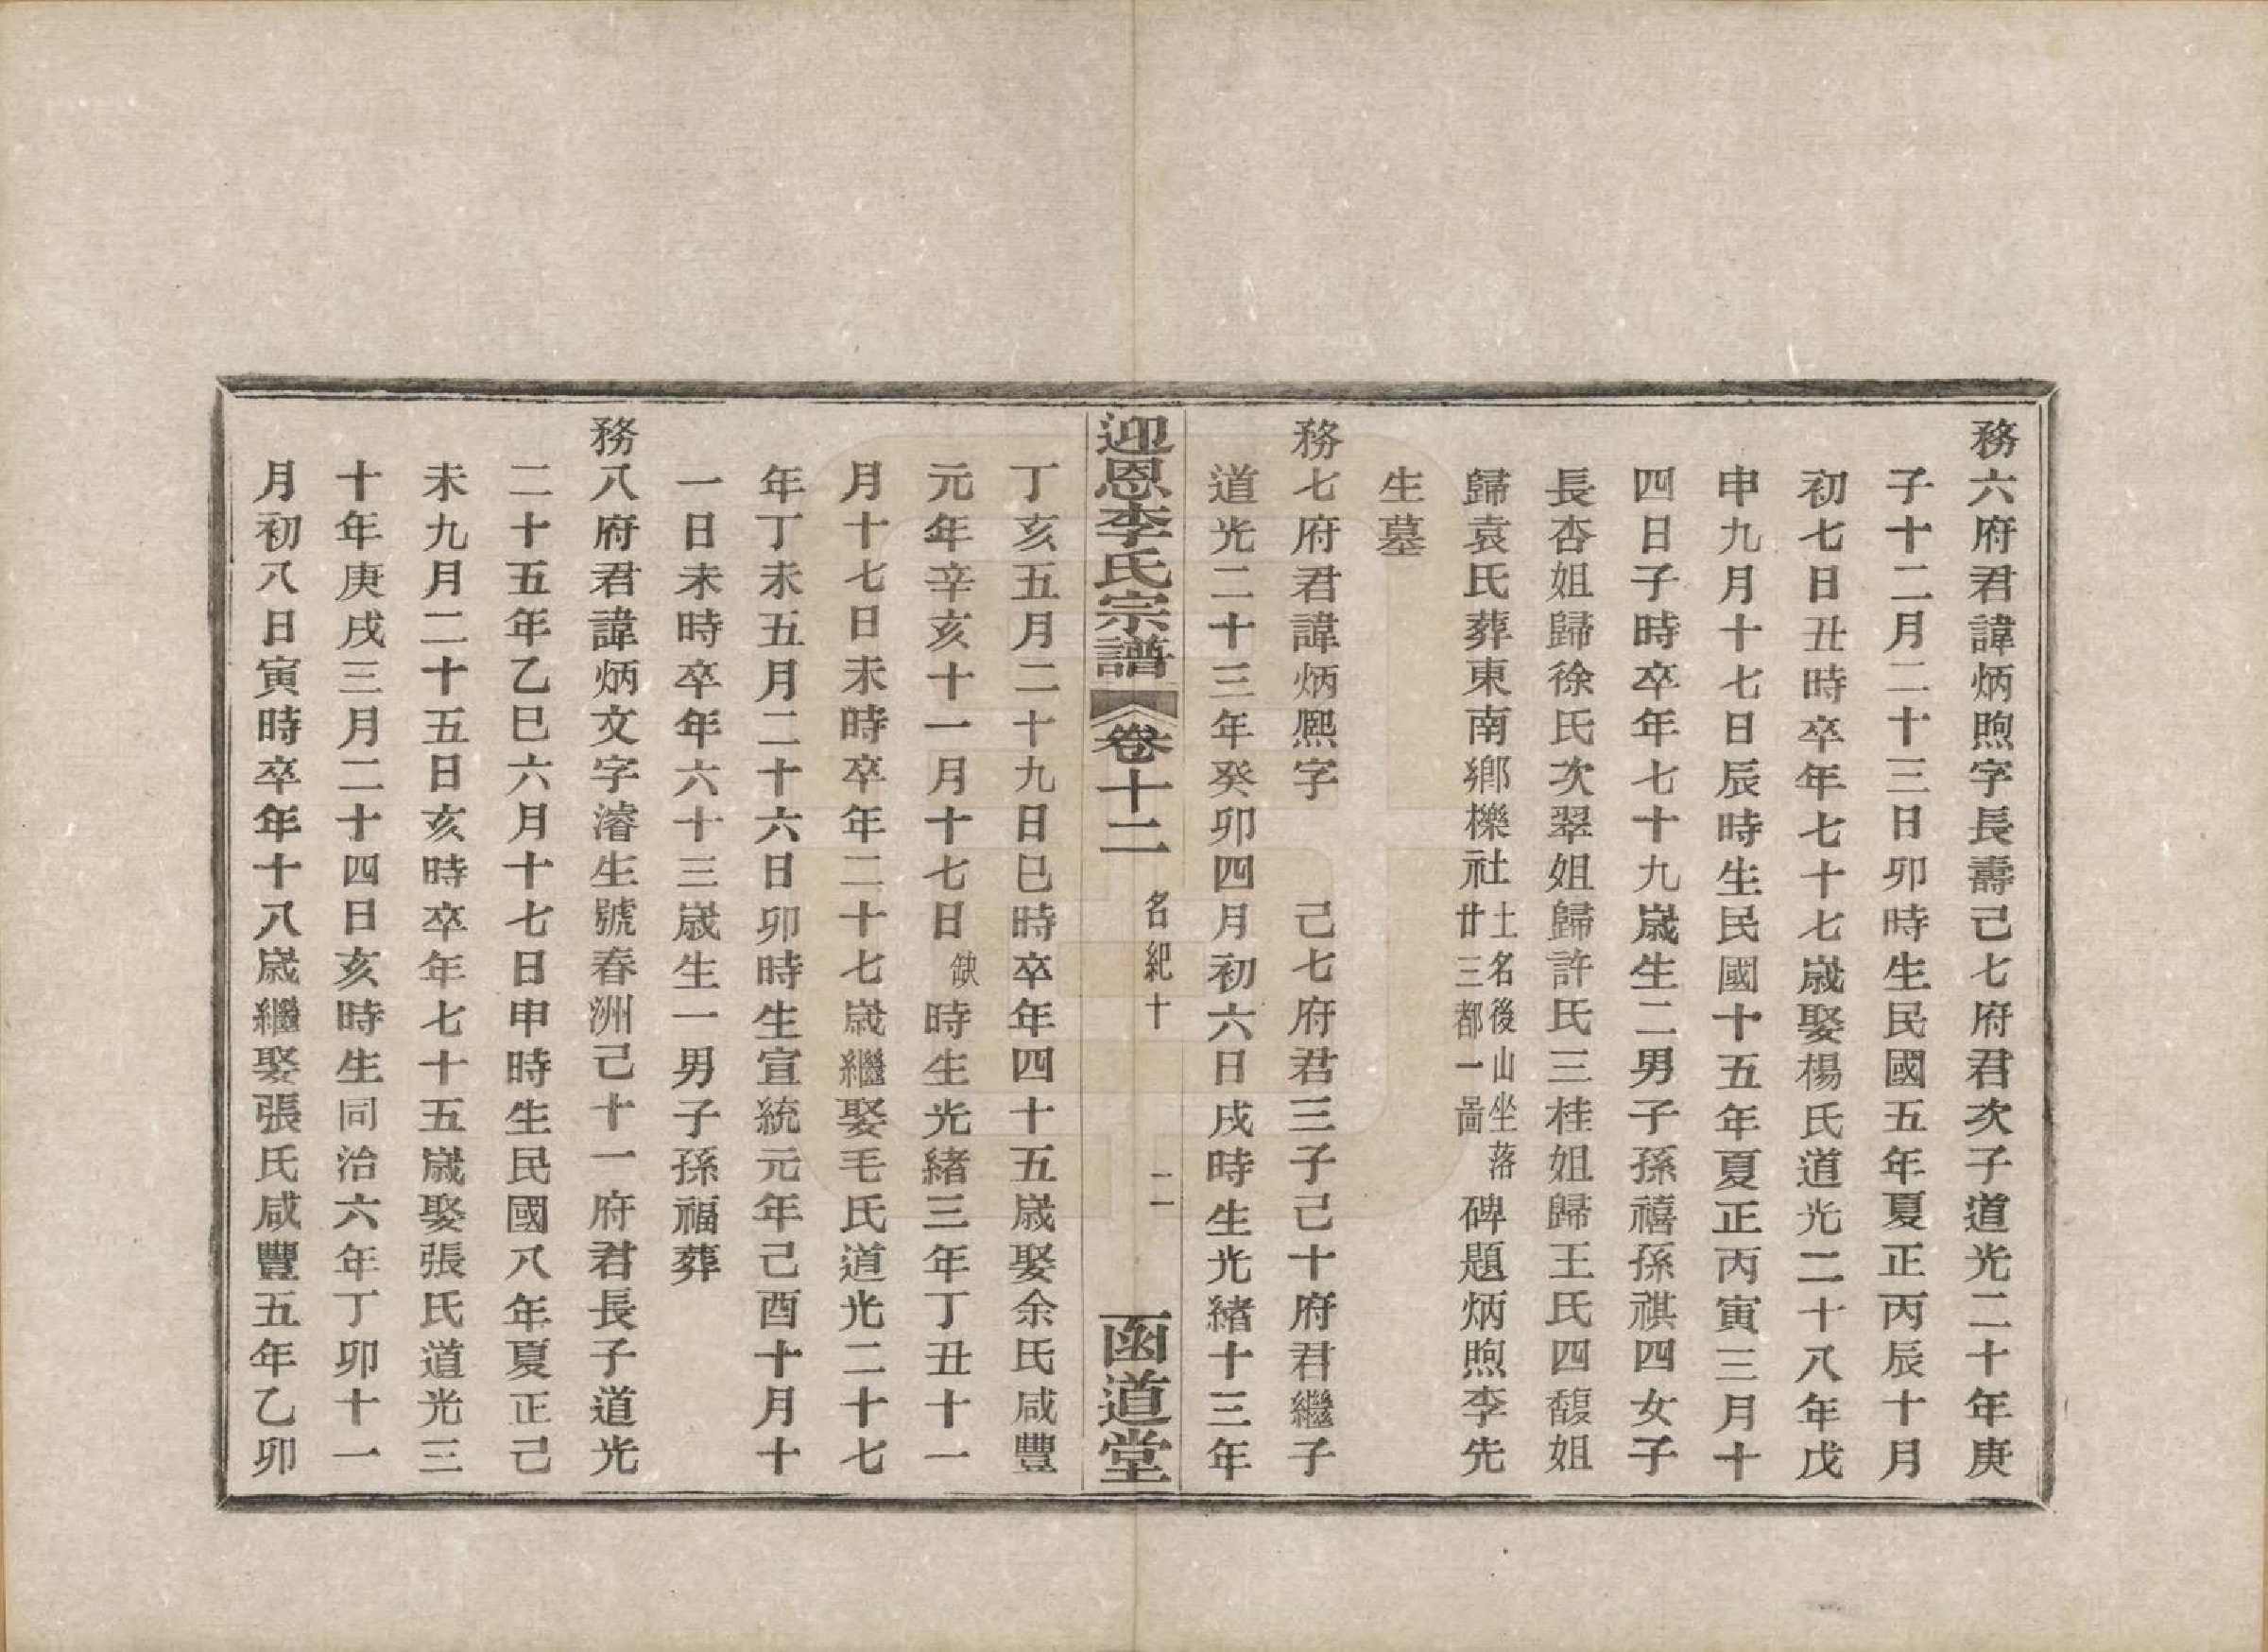 務六府君諱炳煦字長壽己七府君次子道光二十年庚
子十二月二十三日卯時生民國五年夏正丙辰十月
初七日丑時卒年七十七歲娶楊氏道光二十八年戊
申九月十七日辰時生民國十五年夏正丙寅三月十
四日子時卒年七十九歲生二男子孫禧孫祺四女子
長杏姐歸徐氏次翠姐歸許氏三桂姐歸王氏四馥姐
歸袁氏葬東南鄉櫟社土名後山坐落廿三都一啚碑題炳煦李先
生墓
務七府君諱炳熙字　己七府君三子己十府君繼子
道光二十三年癸卯四月初六日戌時生光緒十三年
迎恩李氏宗譜　卷十二　名紀十　二　函道堂
丁亥五月二十九日巳時卒年四十五歲娶余氏咸豐
元年辛亥十一月十七日缺時生光緒三年丁丑十一
月十七日未時卒年二十七歲繼娶毛氏道光二十七
年丁未五月二十六日卯時生宣統元年己酉十月十
一日未時卒年六十三歲生一男子孫福葬
務八府君諱炳文字濬生號春洲己十一府君長子道光
二十五年乙巳六月十七日申時生民國八年夏正己
未九月二十五日亥時卒年七十五歲娶張氏道光三
十年庚戌三月二十四日亥時生同治六年丁卯十一
月初八日寅時卒年十八歲繼娶張氏咸豐五年乙卯